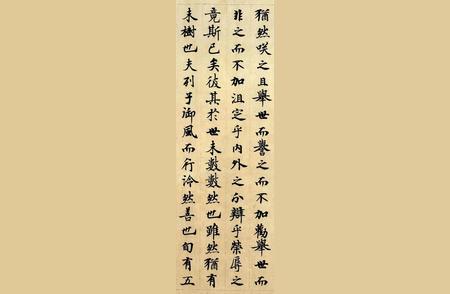 猶然咲之且舉世而譽之而不加勸舉世而
非之而不加沮定乎內外之分辯乎榮辱之
竟斯已矣彼其於世未數數然也雖然猶有
未樹也夫列子御風而行泠然善也旬有五